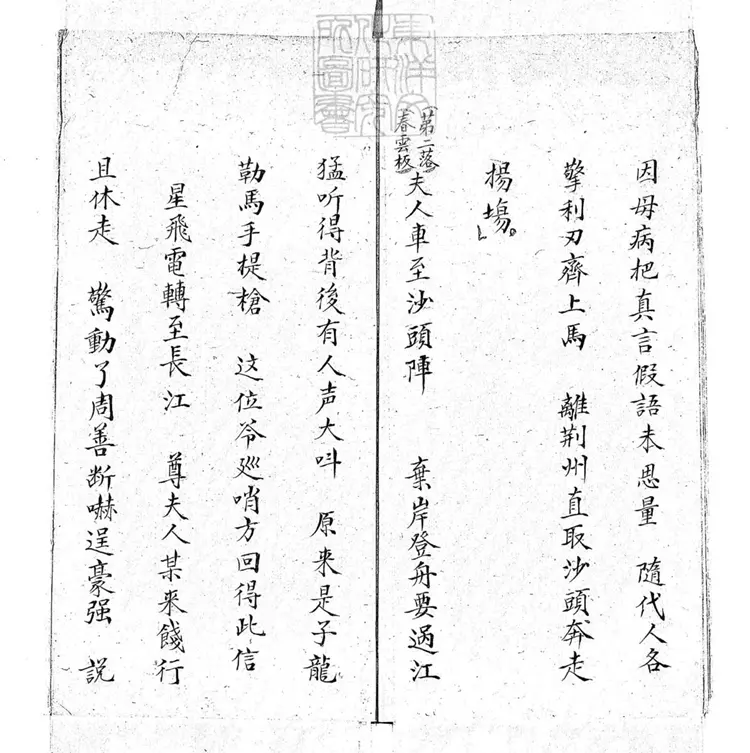 東洋文
化研究
所圖書
因母病把真言假語未思量　隨代人各
擎利刃齊上馬　離荆州直取沙頭奔走
揚塲。
第二落
春雲板
夫人車至沙頭陣　棄岸登舟要過江
猛听得背後有人声大呌　原来是子龍
勒馬手提槍　这位爷廵哨方回得此信
星飛電轉至長江　尊夫人某来餞行
且休走　驚動了周善断嚇逞豪强　説